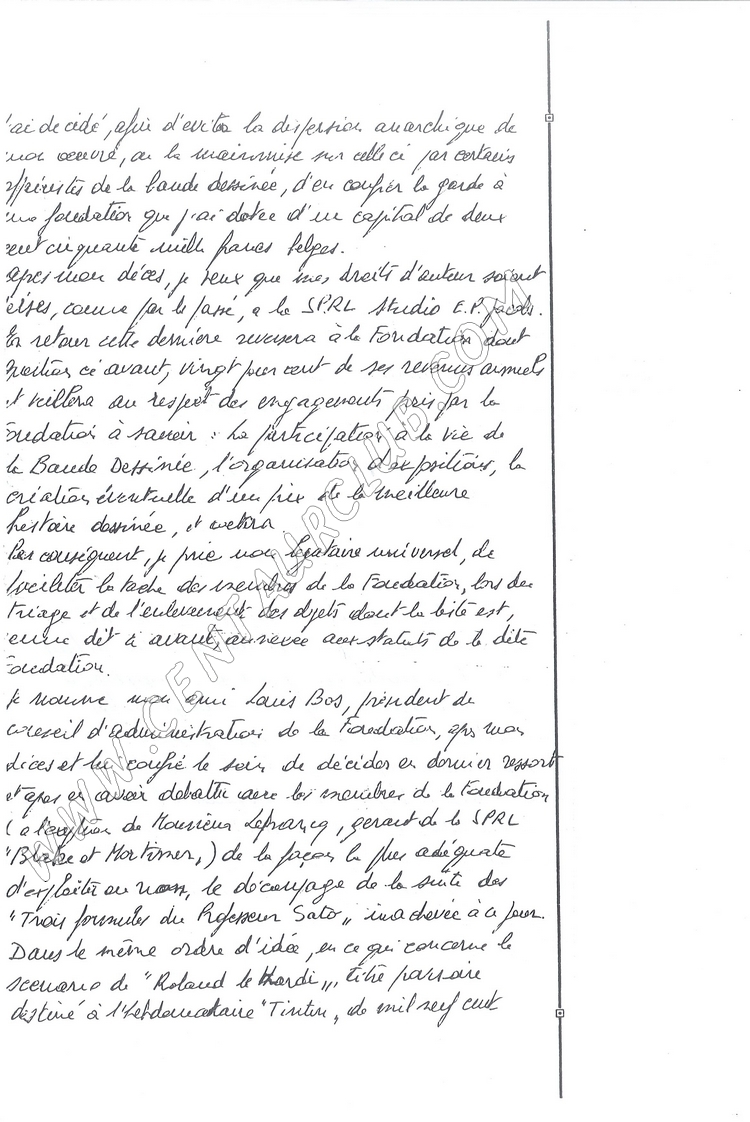 'ai decidé, afin d'eviter la dispersion anarchique de
mon œuvre, ou la mainmise sur celle ci par certains
affairistes de la bande dessinée, d'en confier la garde à
une fondation que j'ai dotée d'un capital de deux
cent cinquante mille francs belges.
Après mon décès, je veux que mes droits d'auteur soient
versés, comme par le passé, a la SPRL Studio E.P. Jacobs.
En retour cette dernière versera à la Fondation dont
question ci avant, vingt pour cent de ses revenus annuels
et veillera au respect des engagements pris par la
Fondation à savoir : La participation à la vie de
la Bande Dessinée, l'organisation d'expositions, la
création éventuelle d'un prix de la meilleure
histoire dessinée, et cætera.
Par conséquent, je prie mon légataire universel, de
faciliter la tache des membres de la Fondation, lors du
triage et de l'enlevement des objets dont la liste est,
comme dit ci avant, annexée aux statuts de la dite
Fondation.
Je nomme mon ami Louis Bos, président du
conseil d'administration de la Fondation, après mon
décès et lui confie le soin de décider en dernier ressort
et après en avoir débattu avec les membres de la Fondation
(a l'exception de Monsieur Lefrancq, gerant de la SPRL
"Blake et Mortimer„) de la façon la plus adéquate
d'exploiter ou non, le découpage de la suite des
"Trois formules du Professeur Sato„ inachevée à ce jour.
Dans le même ordre d'idée, en ce qui concerne le
scenario de "Roland le Hardi„, titre
destiné à l'hebdomadaire "Tintin„ de mil neuf cent
WWW.CENTAURCLUB.COM